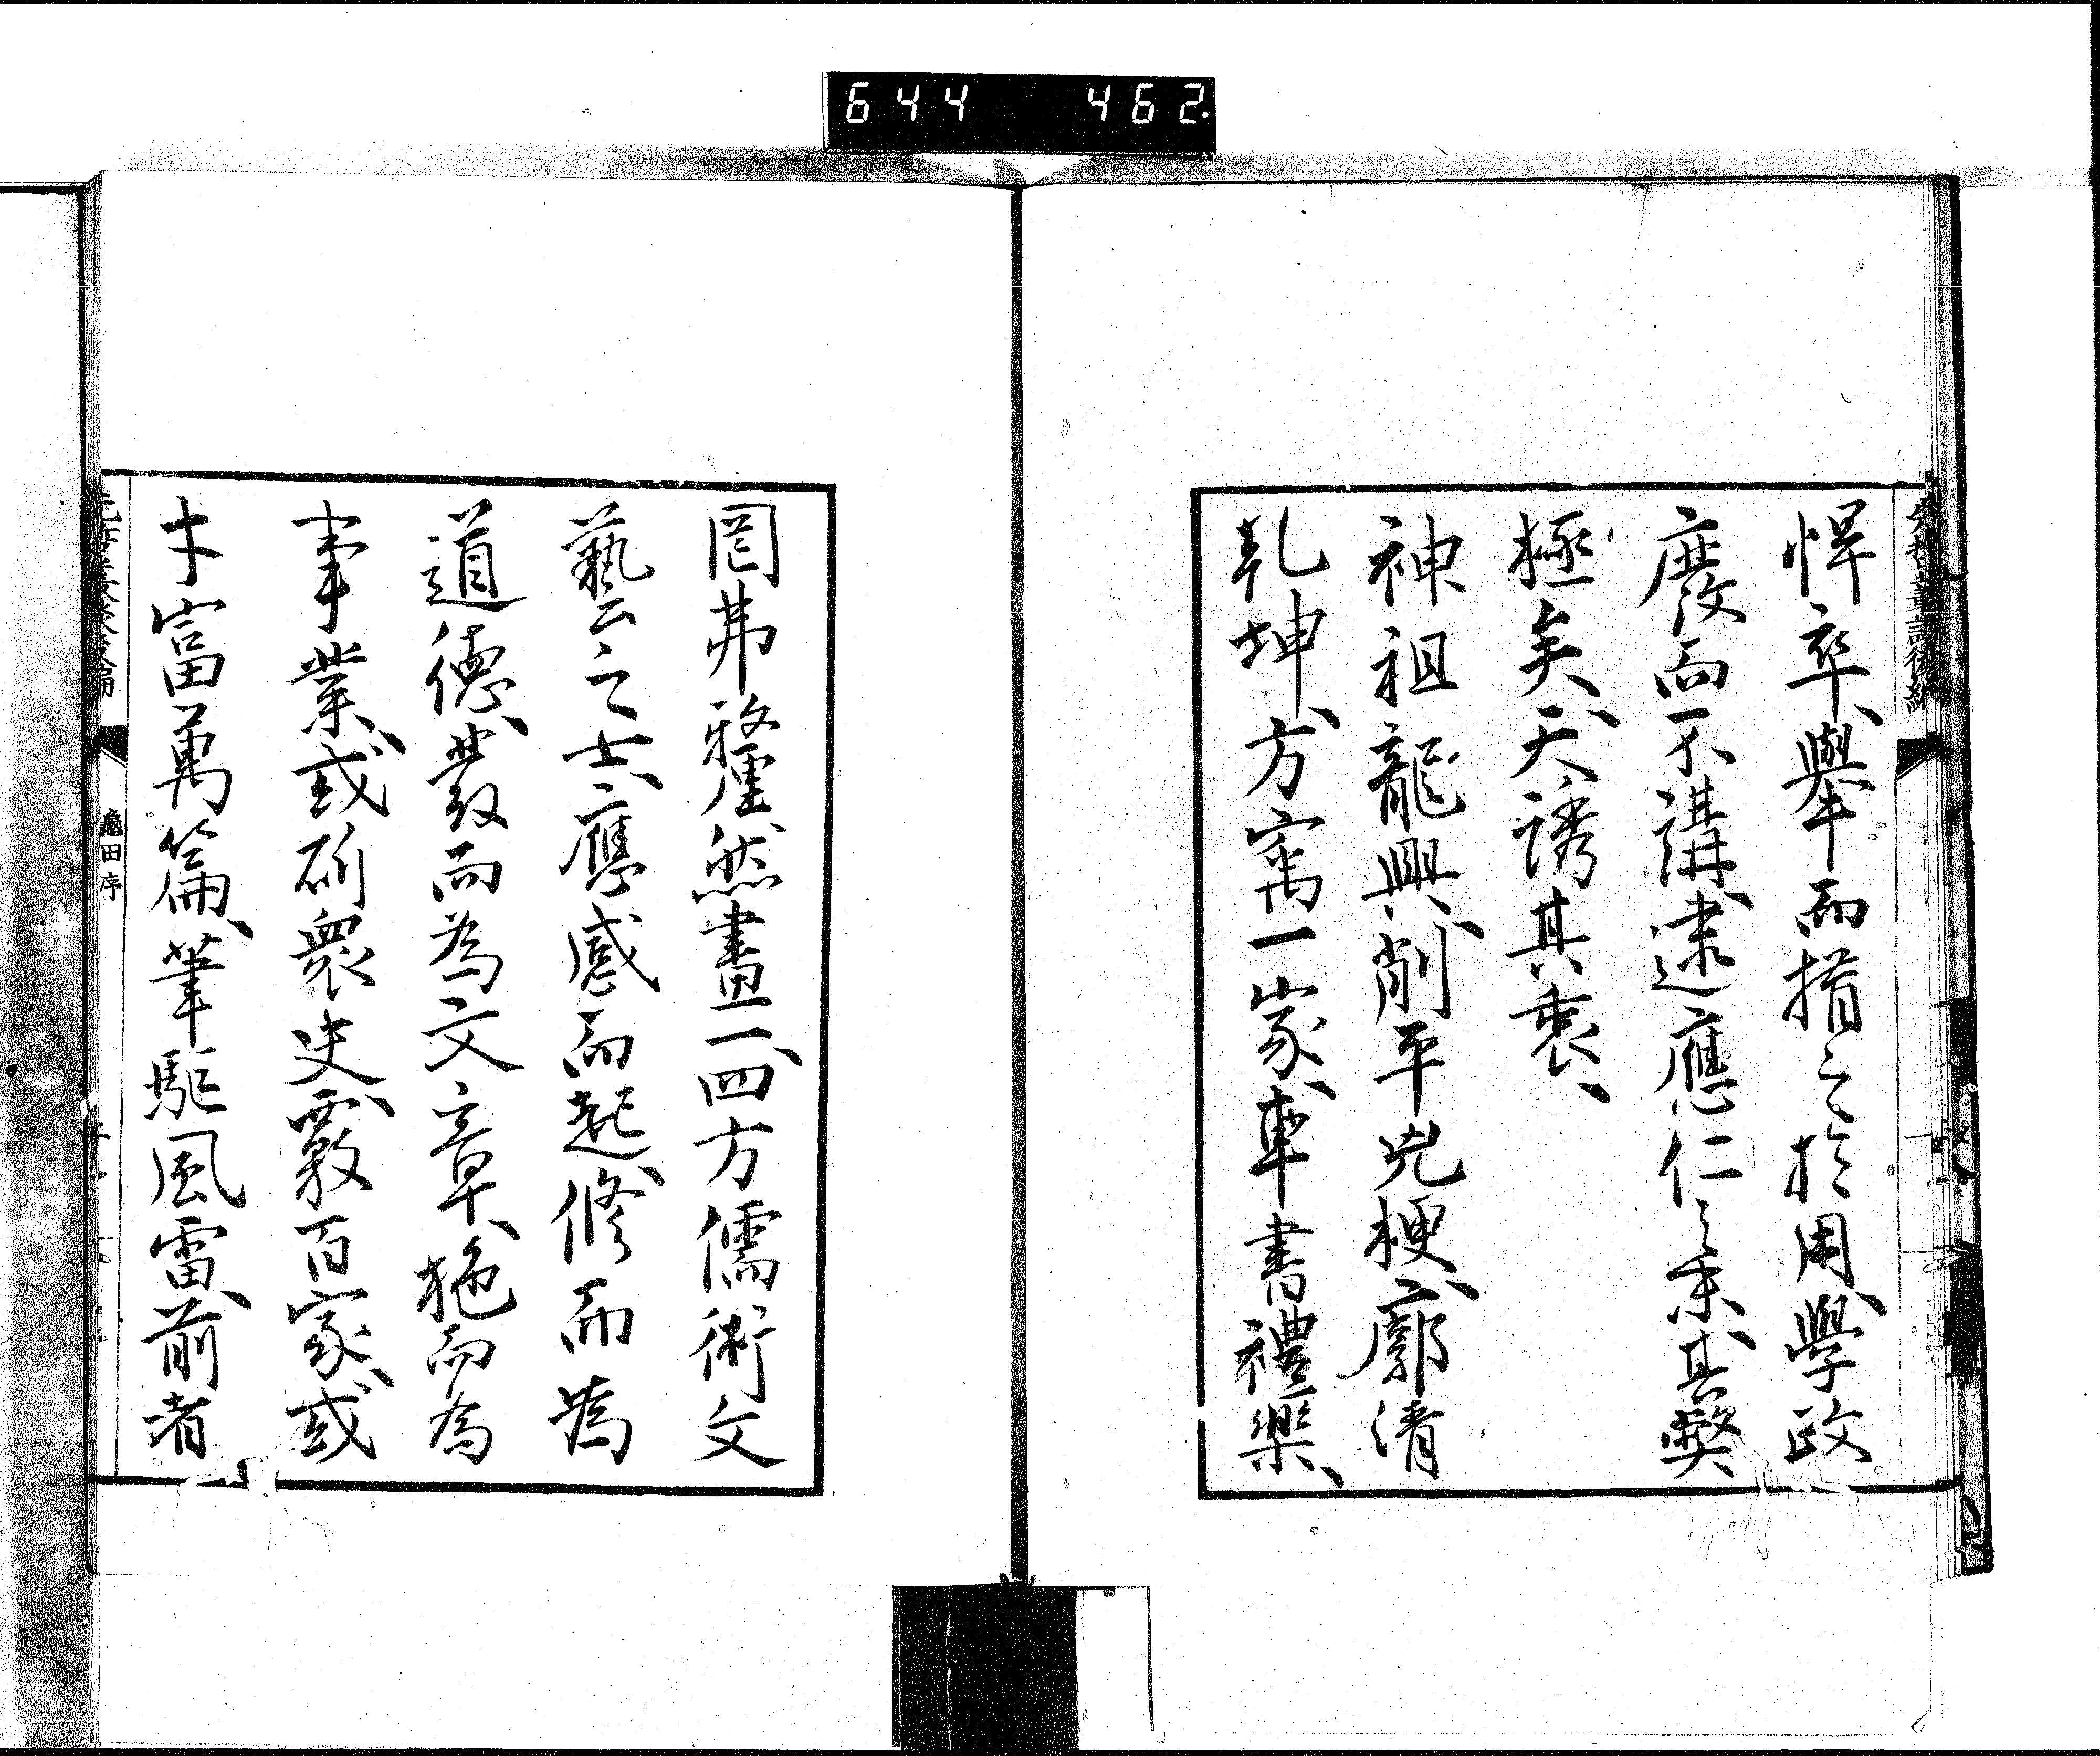 644 462
先哲叢談後編
悍卒、舉而措之於用、學政
廢而不講、逮應仁之季、其弊
極矣、天誘其衷、
神祖龍興、削平兇梗、廓清
乹坤、方寓一家、車書禮樂、
罔弗雅釐然畫一、四方儒術文
藝之士、應感而起、修而為
道德、發而為文章、施而為
事業、或斫衆史、覈百家、或
才富萬篇、筆駈風雷、前者
先哲叢談後編
龜田序